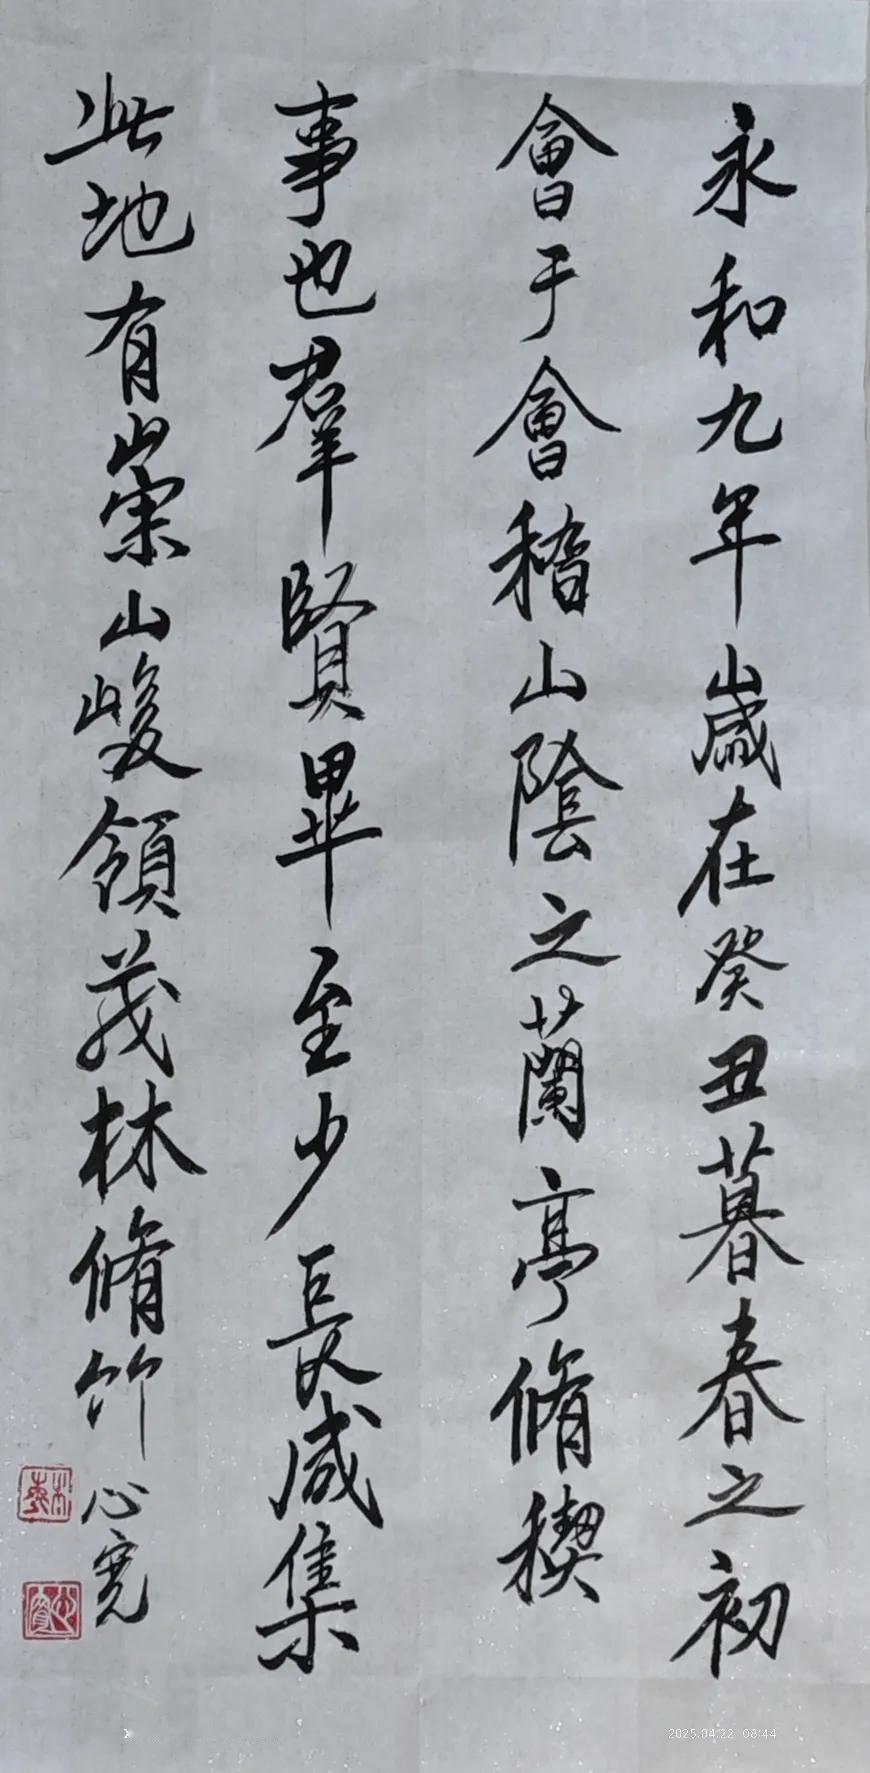 永和九年歲在癸丑暮春之初
會于會稽山陰之蘭亭脩稧
事也羣賢畢至少長咸集
此地有崇山峻領茂林脩竹
心寬
2025.04.22 08:44